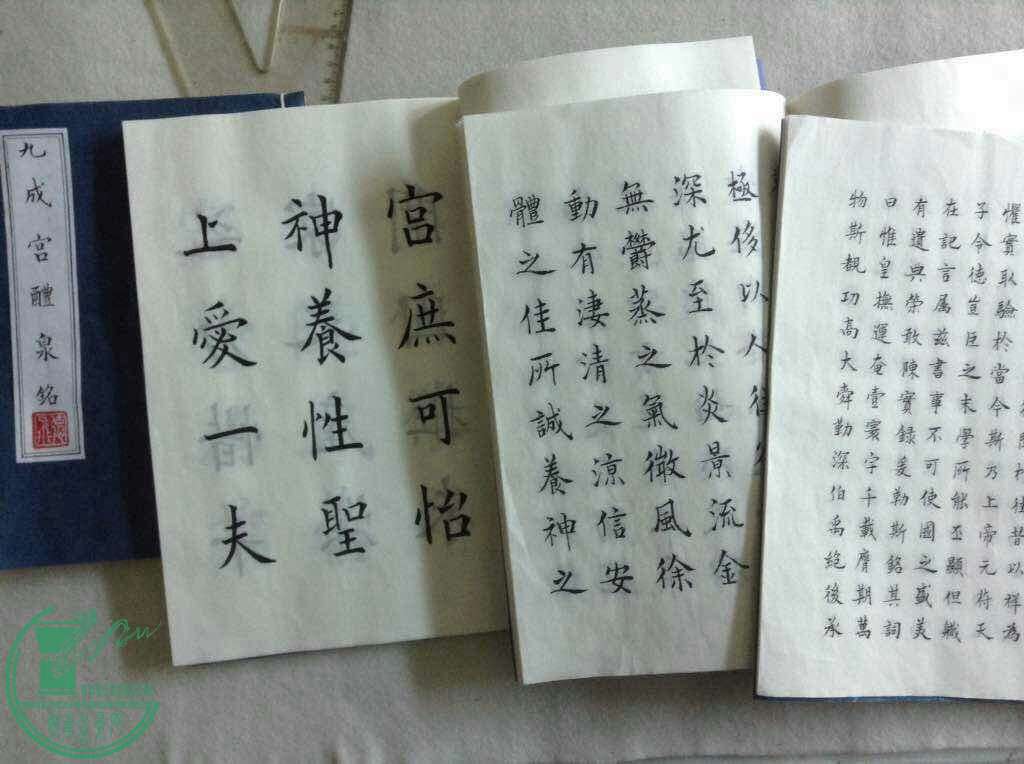 九成宫醴泉銘
宫庶可怡
神養性聖
上愛一夫
極侈以人從
深尤至於炎景流金
無鬱蒸之氣微風徐
動有淒清之涼信安
體之佳所誠養神之
往昔以祥為
懼實取驗於當今斯乃上帝元符天
子令德豈臣之末學所能丕顯但職
在記言属兹書事不可使國之盛美
有遺典榮敢陳實録爰勒斯銘其詞
曰惟皇撫運奄壹寰宇千載膺期萬
物斯觀功高大舜勤深伯禹絶後承